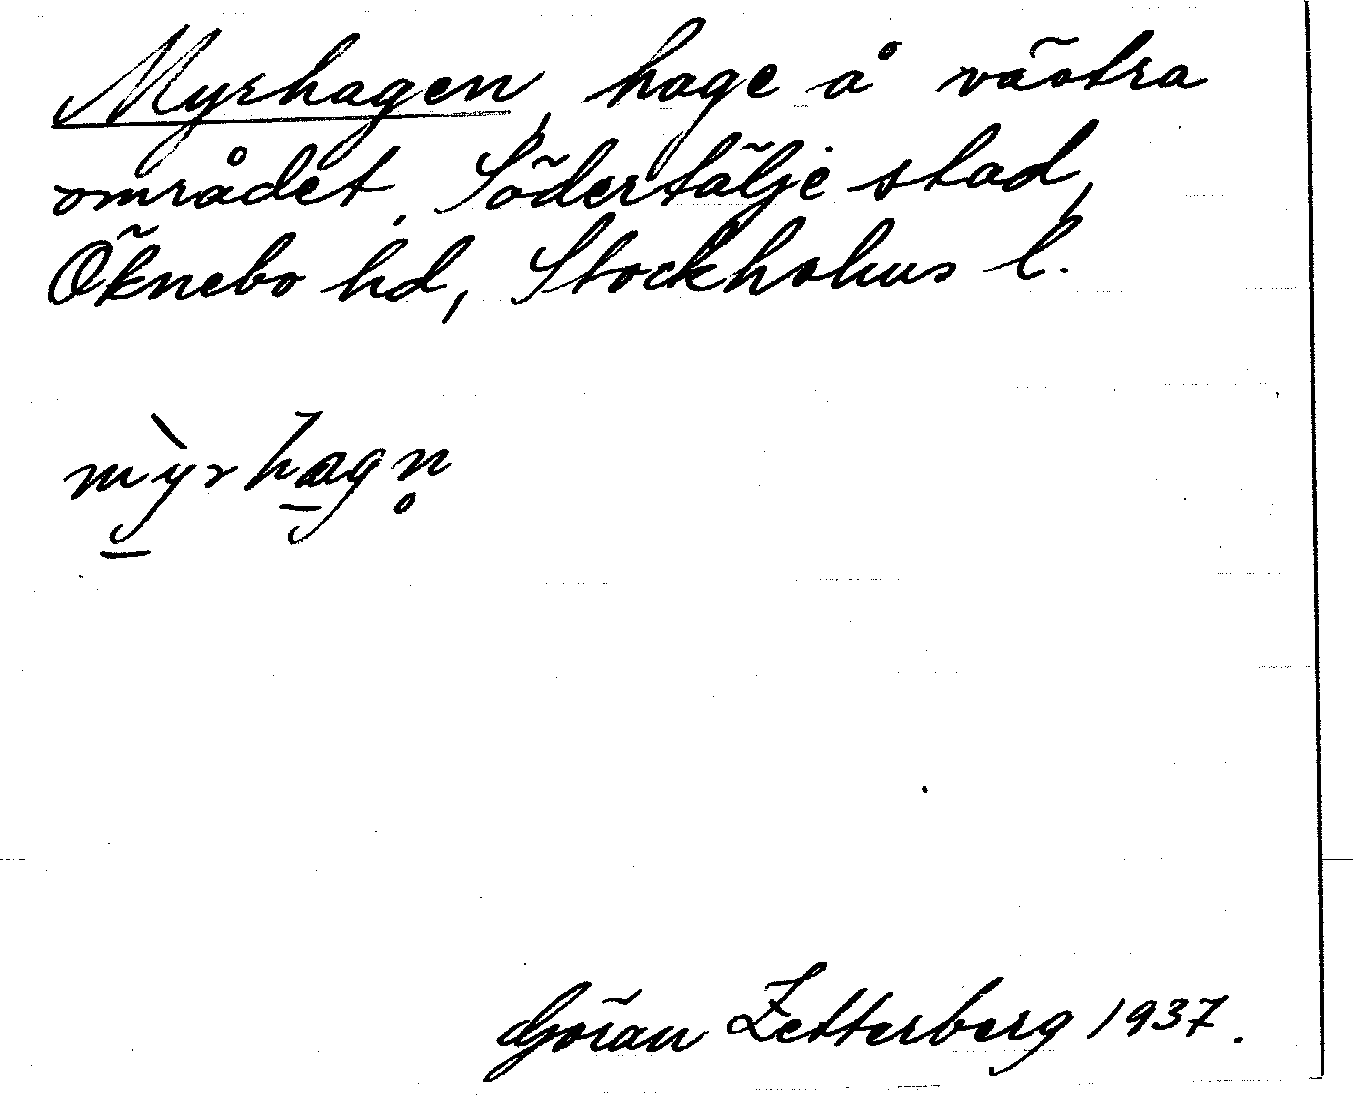 Myrhagen, hage å västra
området. Södertälje stad,
Öknebo hd, Stockholms l.
mỳrhagn̥
Göran Zetterberg 1937.